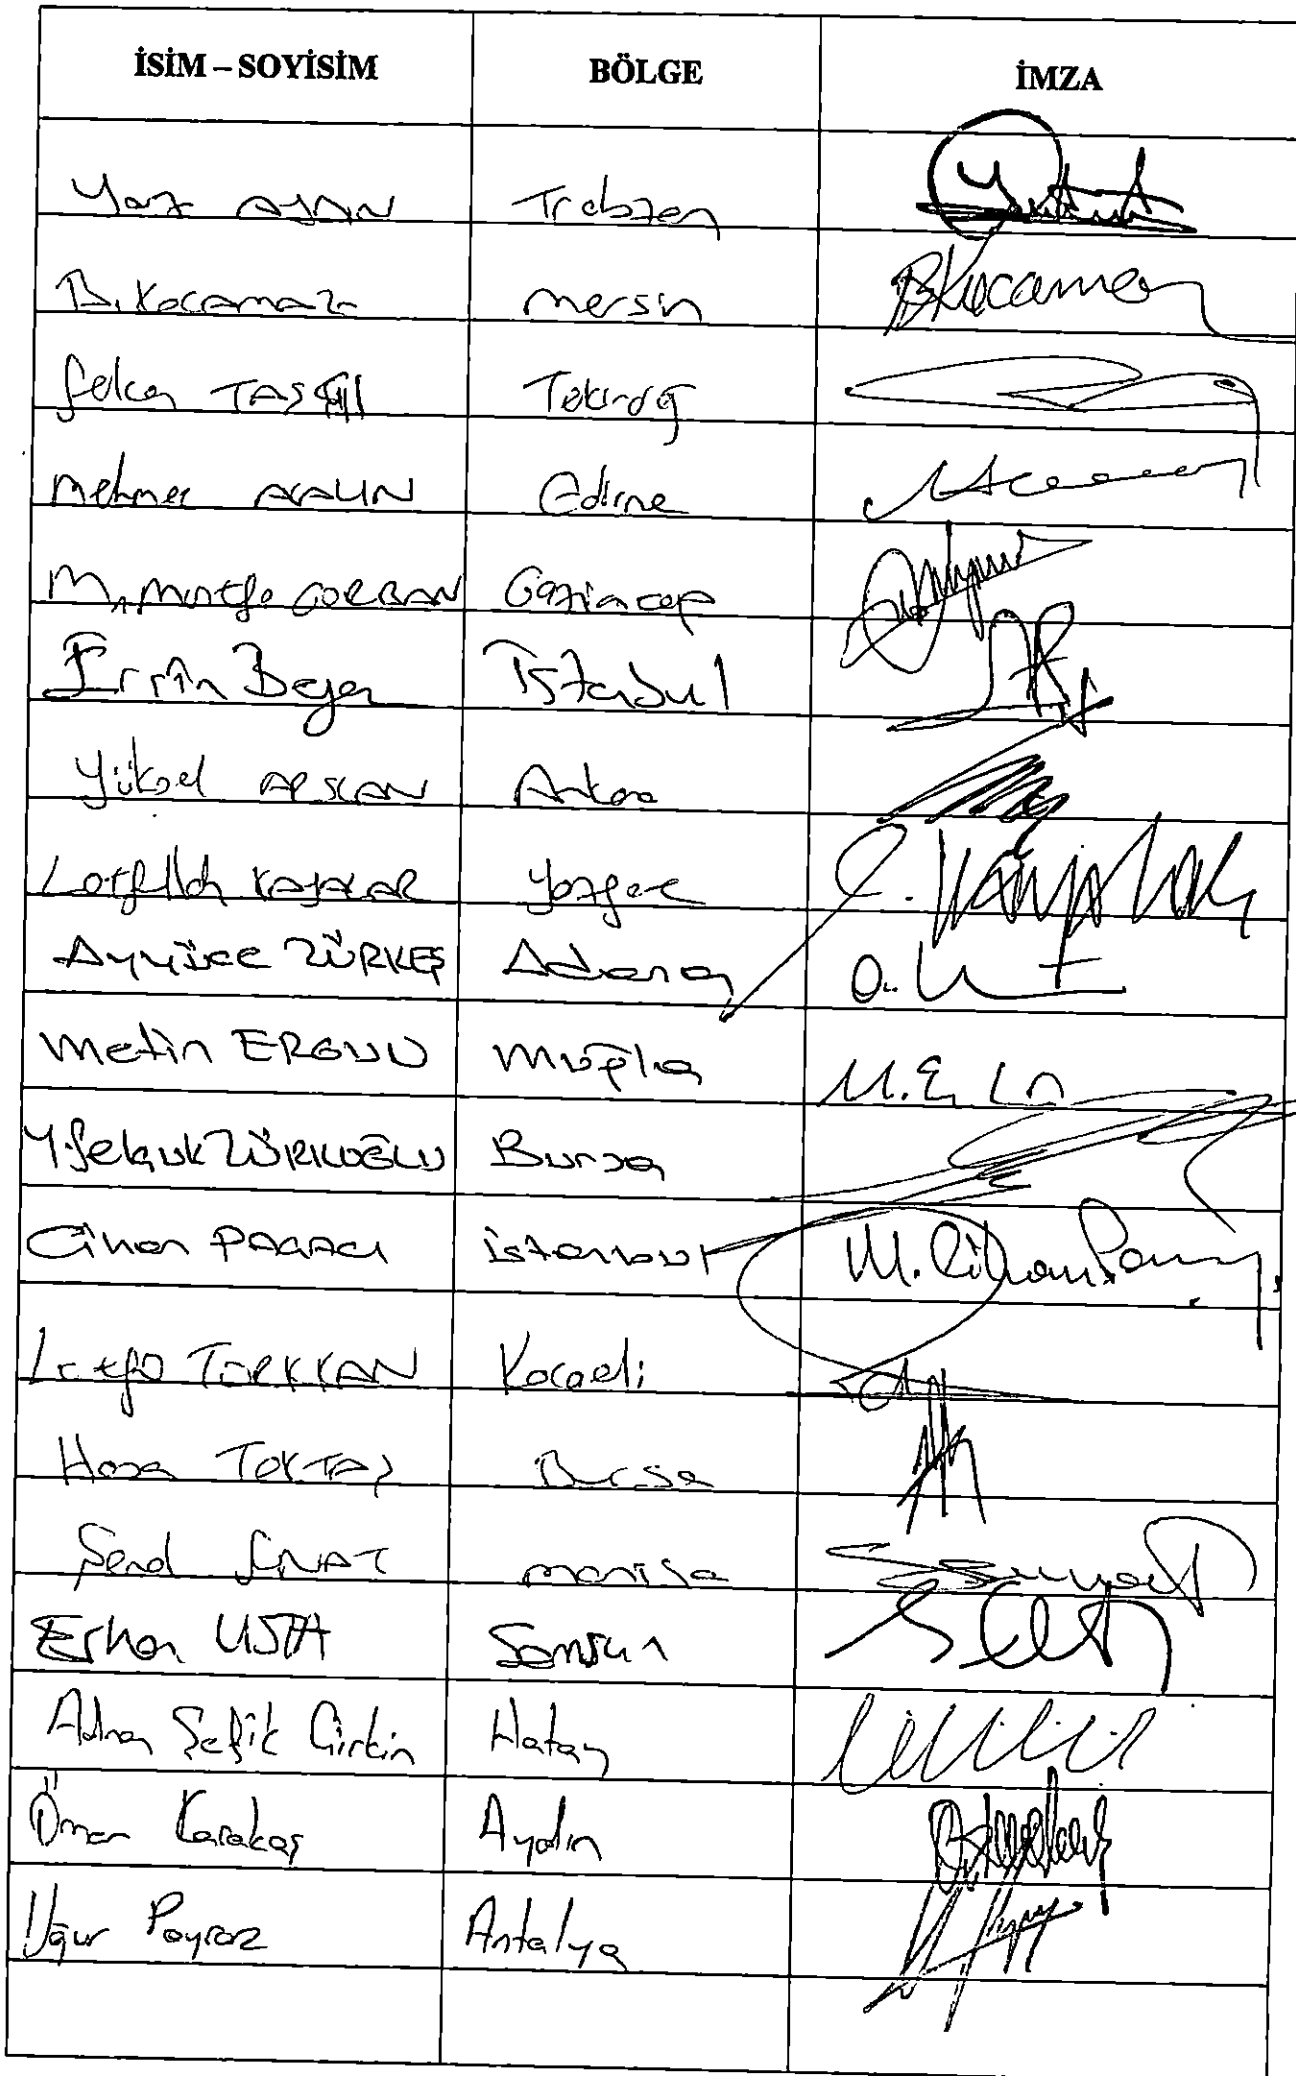 İSİM – SOYİSİM BÖLGE İMZA
Yavuz AYDIN Trabzon
B. Kocamaz Mersin BKocamaz
Selcan TAŞÇI Tekirdağ
Mehmet AKALIN Edirne
M. Mustafa GÜRBAN Gaziantep
Ersin Beyaz İstanbul
Yüksel ARSLAN Ankara
Lütfullah KAYALAR Yozgat
Ayyüce TÜRKEŞ Adana
Metin ERGUN Muğla
Y. Selçuk TÜRKOĞLU Bursa
Cihan PAÇACI İstanbul M. Cihan Paçacı
Lütfü TÜRKKAN Kocaeli
Hasan TOKTAŞ Bursa
Şenol SUNAT Manisa
Erhan USTA Samsun
Adnan Şefik Çirkin Hatay
Ömer Karakaş Aydın
Uğur Poyraz Antalya